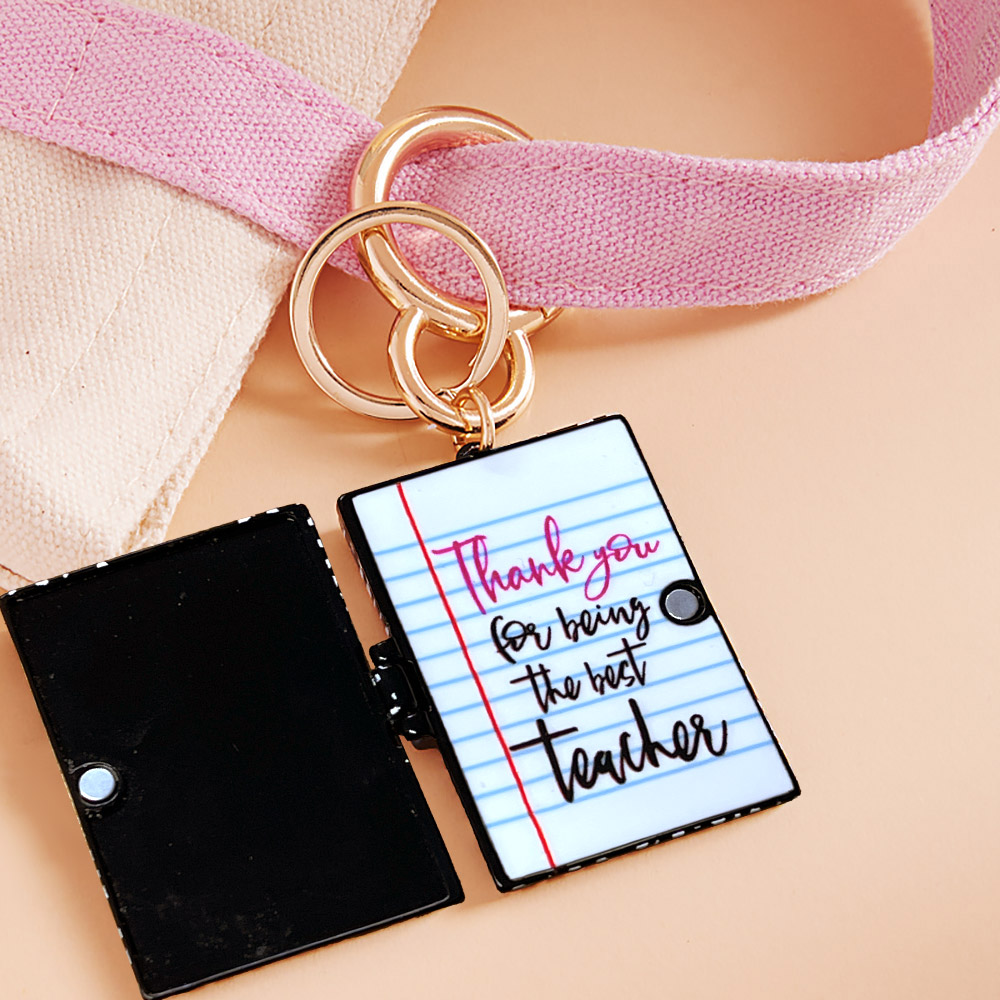 Thank you
for being
the best
teacher